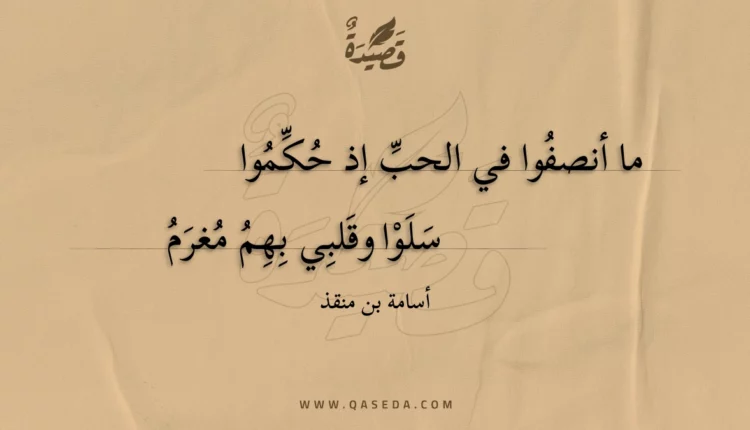 قَصِيْدَةٌ
ما أنصفُوا في الحبِّ إذ حُكِّمُوا
سَلَوْا وقَلبِي بِهِمُ مُغرَمُ
أسامة بن منقذ
WWW.QASEDA.COM